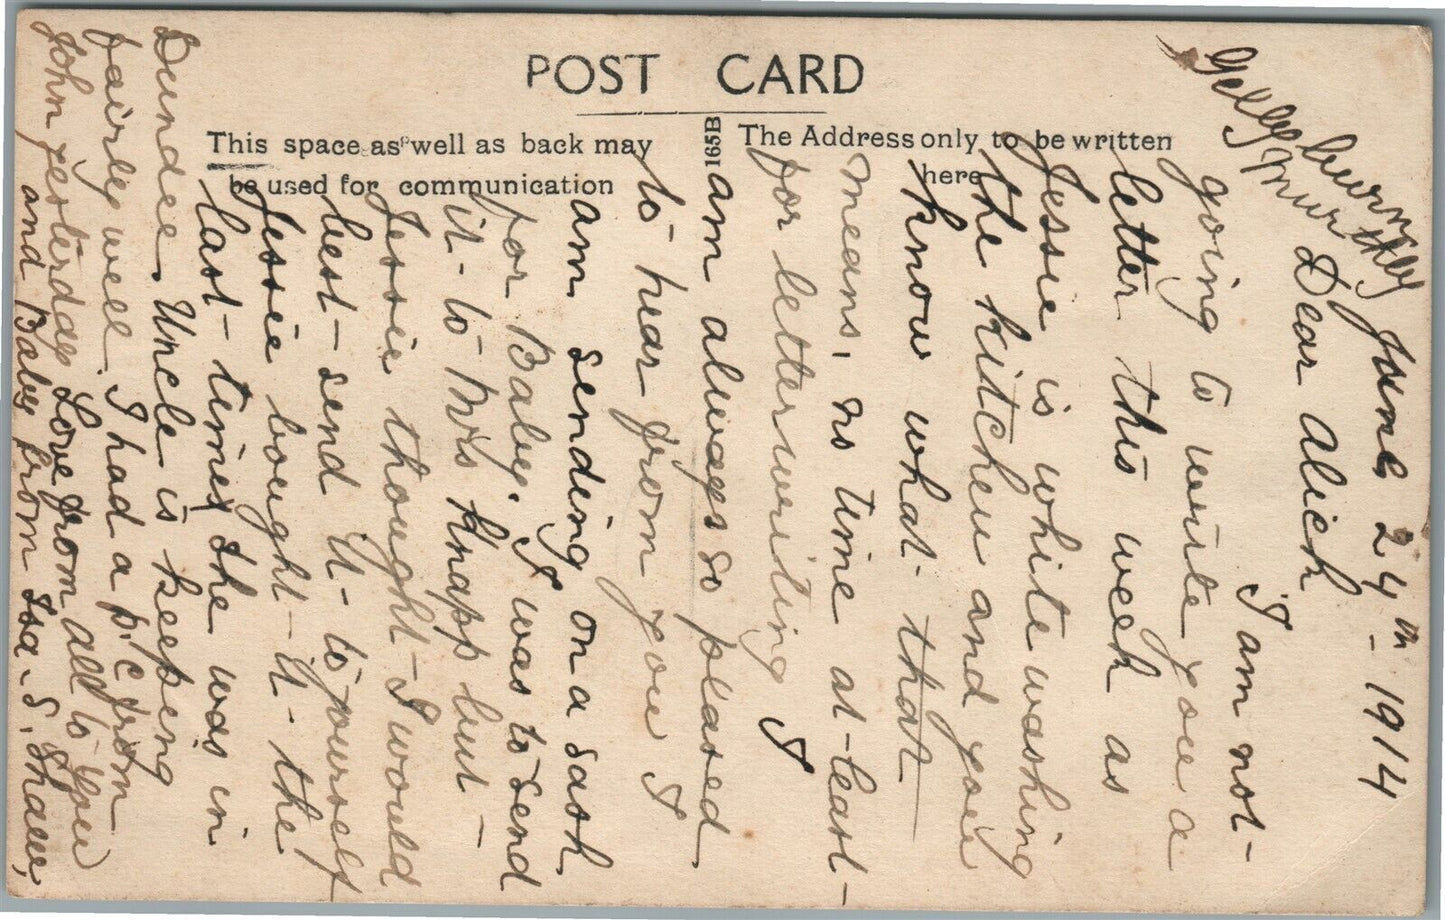 POST CARD
This space as well as back may
be used for communication
165B
The Address only to be written
here
Gellyburn
Murthly
June 24th 1914
Dear Alick
I am not
going to write you a
letter this week as
Jessie is whitewashing
the kitchen and you
know what that
means, no time at least
for letterwriting I
am always so pleased
to hear from you I
am sending on a sash
for Baby. I was to send
it to Mrs Knapp but
Jessie thought I would
best send it to yourself
Jessie bought it the
last time she was in
Dundee. Uncle is keeping
fairly well. I had a p.c from
John yesterday Love from all to you
and Baby from Isa. S. Shaw,